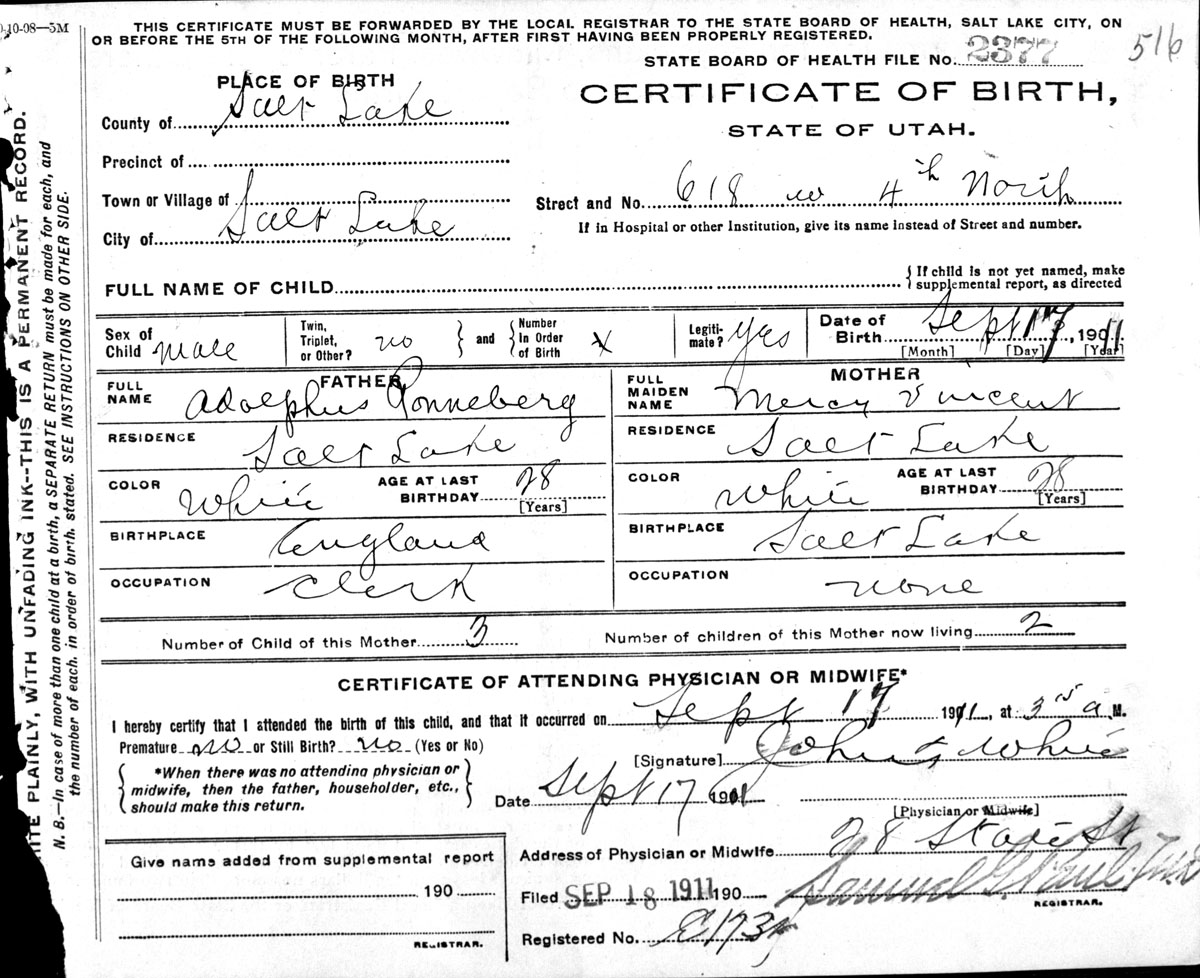 10-98—5M
THIS CERTIFICATE MUST BE FORWARDED BY THE LOCAL REGISTRAR TO THE STATE BOARD OF HEALTH, SALT LAKE CITY, ON
OR BEFORE THE 5TH OF THE FOLLOWING MONTH, AFTER FIRST HAVING BEEN PROPERLY REGISTERED.
STATE BOARD OF HEALTH FILE No. 2377
516
PLACE OF BIRTH
CERTIFICATE OF BIRTH,
STATE OF UTAH.
County of Salt Lake
Precinct of
Town or Village of
City of Salt Lake
Street and No. 618 w 4th North
If in Hospital or other Institution, give its name instead of Street and number.
FULL NAME OF CHILD
{If child is not yet named, make
supplemental report, as directed
Sex of Child Male
Twin, Triplet, or Other? no
} and { Number In Order of Birth X
Legitimate? Yes
Date of Birth Sept 17, 1911
[Month] [Day] [Year]
FATHER
FULL NAME Adolphus Ronneberg
RESIDENCE Salt Lake
COLOR White
AGE AT LAST BIRTHDAY 28 [Years]
BIRTHPLACE England
OCCUPATION Clerk
MOTHER
FULL MAIDEN NAME Mercy Vincent
RESIDENCE Salt Lake
COLOR White
AGE AT LAST BIRTHDAY 28 [Years]
BIRTHPLACE Salt Lake
OCCUPATION none
Number of Child of this Mother 3
Number of children of this Mother now living 2
CERTIFICATE OF ATTENDING PHYSICIAN OR MIDWIFE*
I hereby certify that I attended the birth of this child, and that it occurred on Sept 17 1911, at 3 a M.
Premature no or Still Birth? no (Yes or No)
{*When there was no attending physician or
midwife, then the father, householder, etc.,
should make this return.}
[Signature] John White
Date Sept 17 1911
[Physician or Midwife]
Address of Physician or Midwife 28 State St
Filed SEP 18 1911 190
Samuel G Paul
REGISTRAR.
Registered No.
Give name added from supplemental report
190
REGISTRAR.
PLAINLY, WITH UNFADING INK--THIS IS A PERMANENT RECORD.
N. B.—In case of more than one child at a birth, a SEPARATE RETURN must be made for each, and
the number of each, in order of birth, stated. SEE INSTRUCTIONS ON OTHER SIDE.